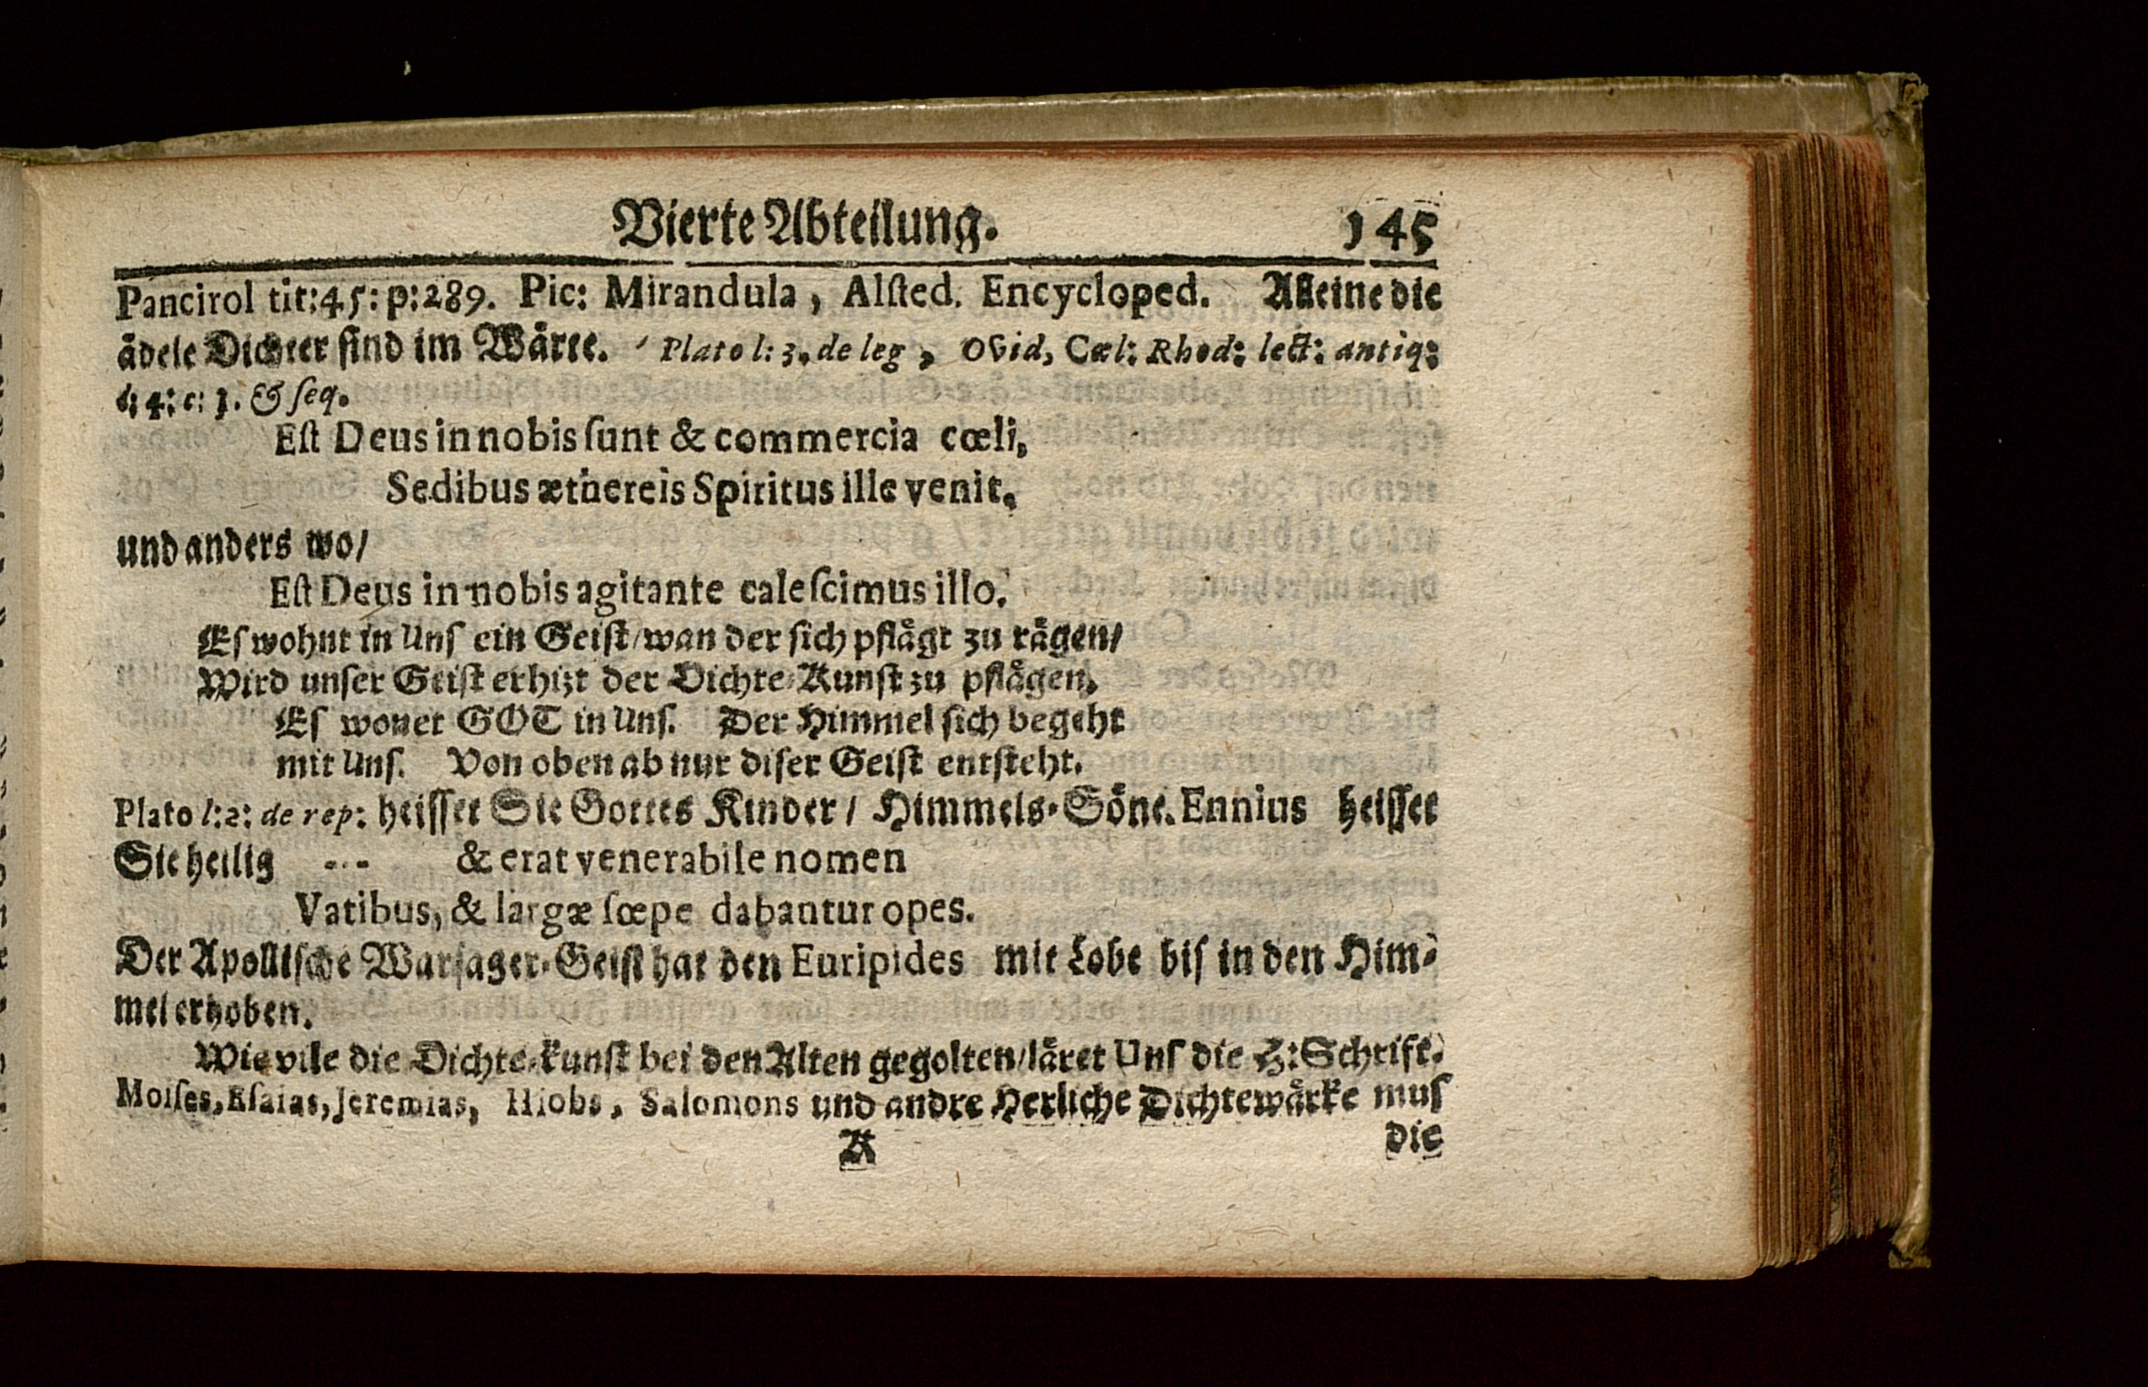 Vierte Abteilung. 145
Pancirol tit:45: p:289. Pic: Mirandula, Alſted. Encycloped. Alleine die
ädele Dichter ſind im Wärte. Plato l: 3. de leg, Ovid, Cæl: Rhod: lect: antiq:
l: 4: c: 3. & ſeq.
Eſt Deus in nobis ſunt & commercia cœli,
Sedibus æthereis Spiritus ille venit.
und anders wo/
Eſt Deus in nobis agitante caleſcimus illo.
Eſ wohnt in Unſ ein Geiſt/ wan der ſich pflägt zu rägen/
Wird unſer Geiſt erhizt der Dichte-Kunſt zu pflägen.
Eſ wonet GOT in Unſ. Der Himmel ſich begeht
mit Unſ. Von oben ab nur diſer Geiſt entſteht.
Plato l:2: de rep: heiſſet Sie Gottes Kinder/ Himmels-Söne. Ennius heiſſet
Sie heilig --- & erat venerabile nomen
Vatibus, & largæ ſœpe dabantur opes.
Der Apolliſche Warſager-Geiſt hat den Euripides mit Lobe biſ in den Him-
mel erhoben.
Wie vile die Dichte-kunſt bei den Alten gegolten/ läret Unſ die H: Schrift.
Moiſes, Eſaias, Jeremias, Hiobs, Salomons und andre Herliche Dichtewärke muſ
K die